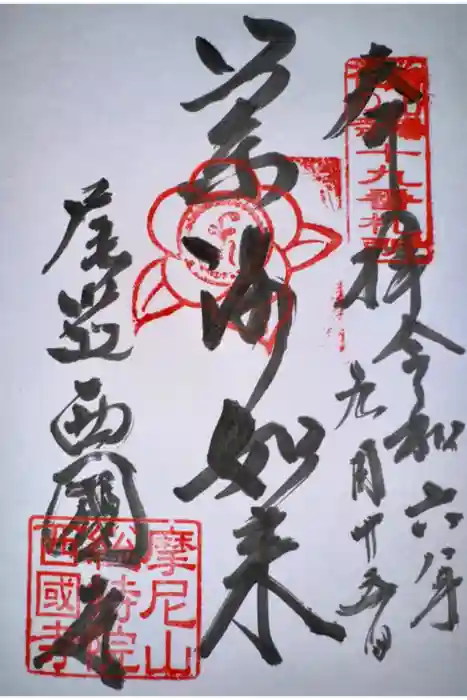 奉拝 令和六年
九月廿五日
薬師如来
尾道 西國寺
十九番札所
摩尼山
総持院
西國寺